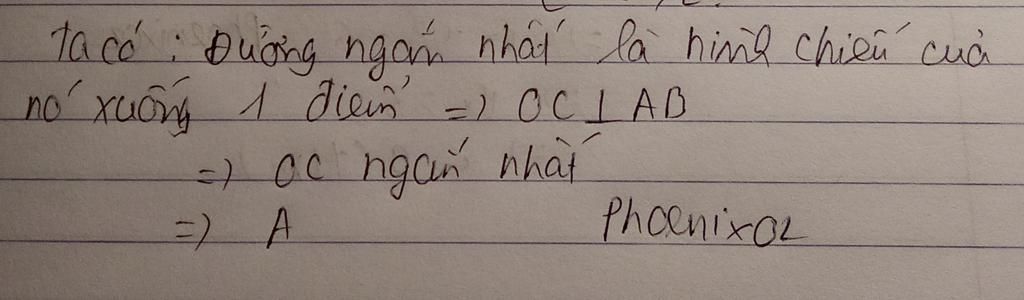 ta có : Đường ngắn nhất là hình chiếu của
nó xuống 1 điểm => OC ⊥ AB
=> OC ngắn nhất
=> A Phoenix02